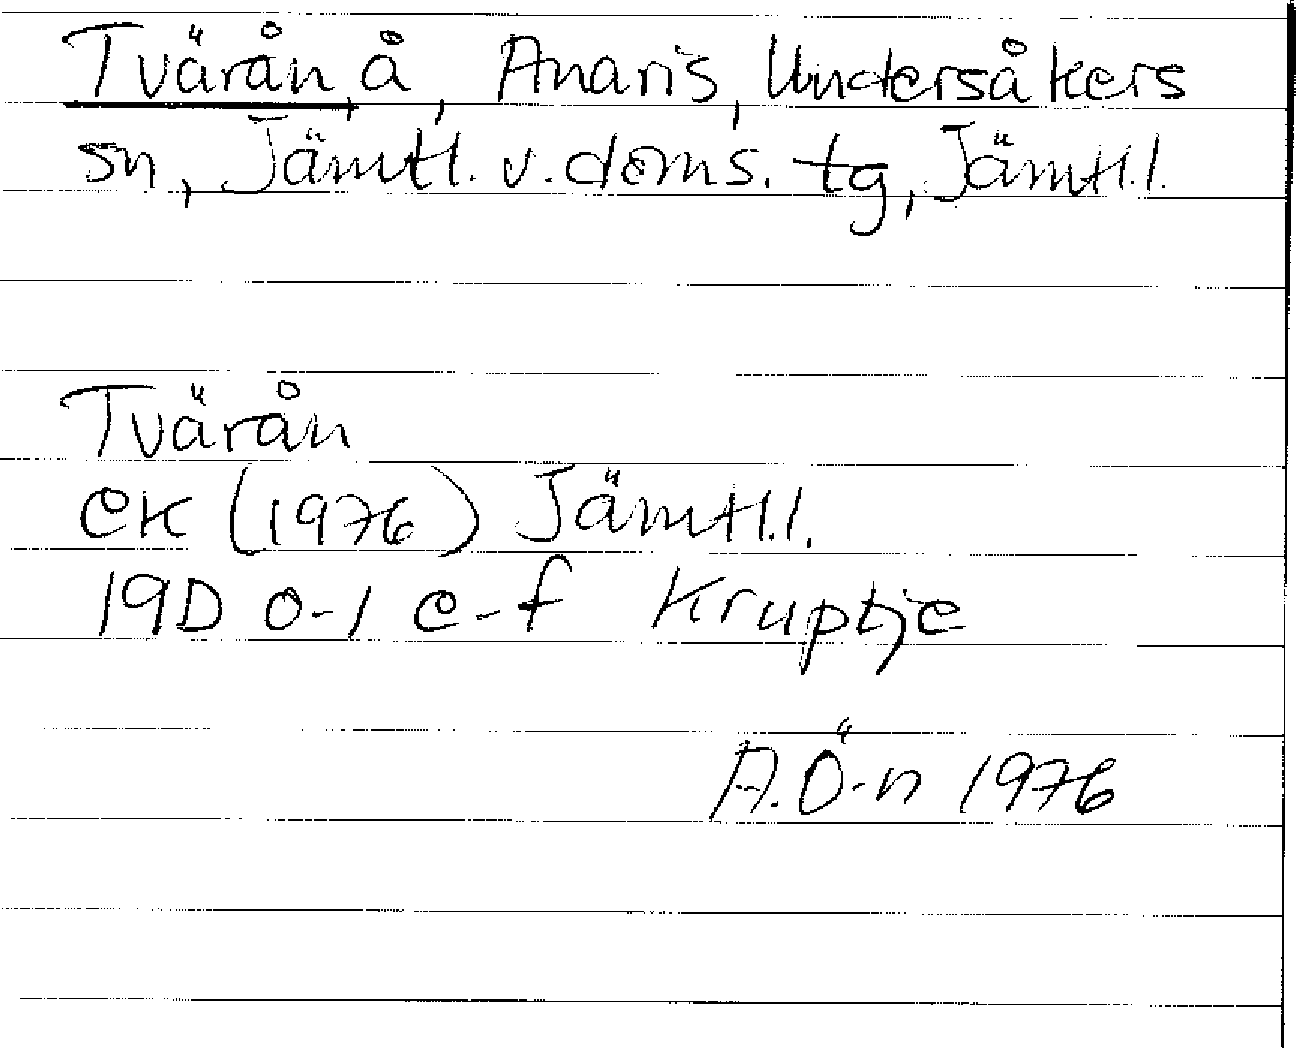 Tvärån, å, Anaris, Undersåkers
sn, Jämtl. v. doms. tg, Jämtl.l.
Tvärån
EK (1976) Jämtl.l.
19D 0-1 e-f Kruptje
A.Ö-n 1976